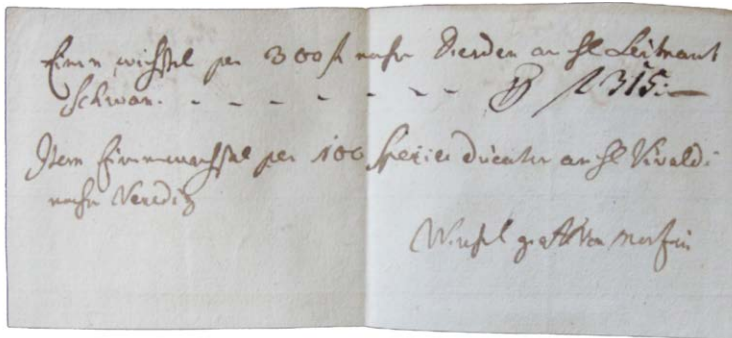 Einen wichssel per 300 f nacher Dresden an H Leitnant
Schwan. - - - - - - - f 315:—
Item Einen wechssel per 100 Spezies Ducaten an H Vivaldi
nacher Venedig
Wenzel graff Von Morzin